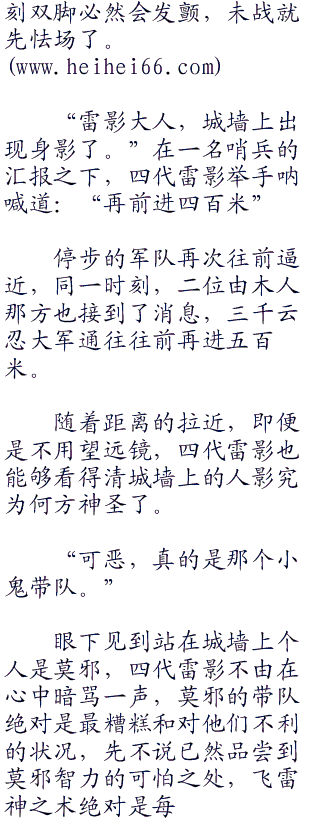 刻双脚必然会发颤，未战就
先怯场了。
(www.heihei66.com)
“雷影大人，城墙上出
现身影了。”在一名哨兵的
汇报之下，四代雷影举手呐
喊道：“再前进四百米”
停步的军队再次往前逼
近，同一时刻，二位由木人
那方也接到了消息，三千云
忍大军通往往前再进五百
米。
随着距离的拉近，即便
是不用望远镜，四代雷影也
能够看得清城墙上的人影究
为何方神圣了。
“可恶，真的是那个小
鬼带队。”
眼下见到站在城墙上个
人是莫邪，四代雷影不由在
心中暗骂一声，莫邪的带队
绝对是最糟糕和对他们不利
的状况，先不说已然品尝到
莫邪智力的可怕之处，飞雷
神之术绝对是每